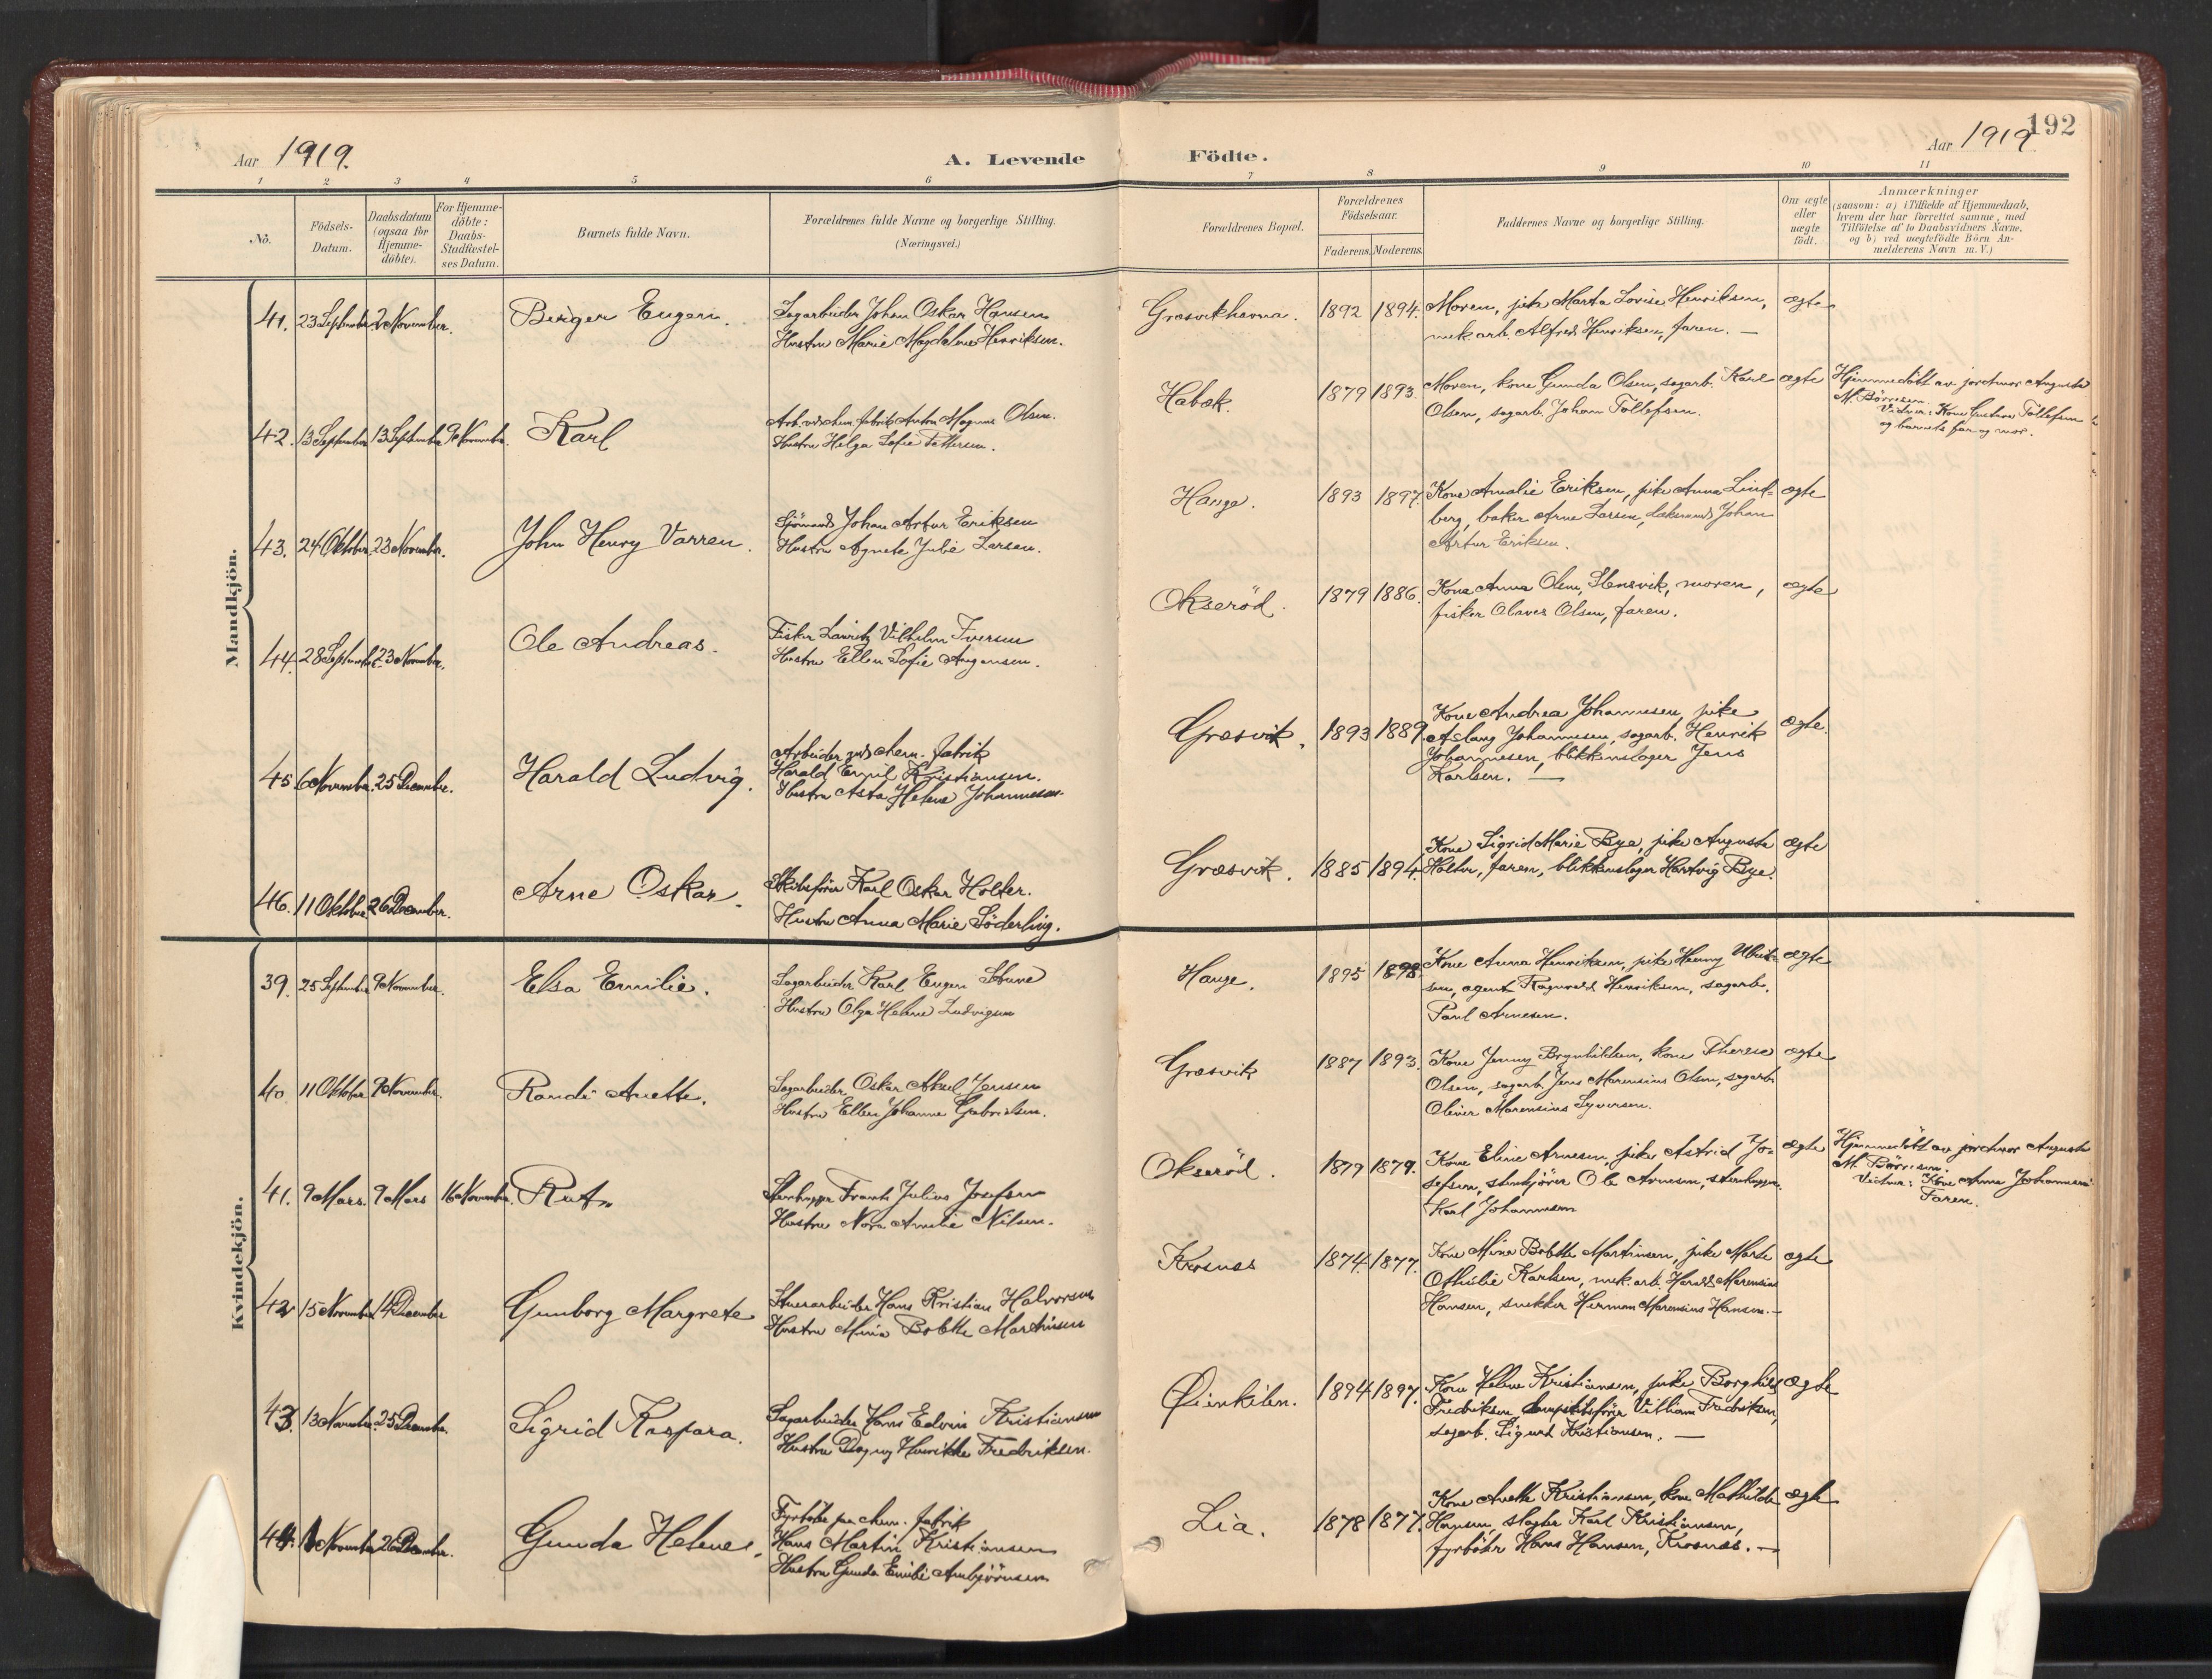 192
Aar 1919.
A. Levende Födte.
Aar 1919
1 2 3 4 5 6 7 8 9 10 11
No.
Födsels-
Datum.
Daabsdatum
(ogsaa for
Hjemme-
döbte).
For Hjemme-
döbte:
Daabs-
Stadfæstel-
ses Datum.
Barnets fulde Navn.
Forældrenes fulde Navne og borgerlige Stilling.
(Næringsvei.)
Forældrenes Bopæl.
Forældrenes
Födselsaar.
Faderens. Moderens.
Faddernes Navne og borgerlige Stilling.
Om ægte
eller
uægte
födt.
Anmærkninger
(saasom: a) i Tilfælde af Hjemmedaab,
hvem der har forrettet samme, med
Tilföielse af to Daabsvidners Navne,
og b) ved uægtefödte Börn An-
melderens Navn m. V.)
Mandkjön.
41. 23 September 2 November. Birger Eugen.
Sagarbeider Johan Oskar Hansen
Hustru Marie Magdalene Henriksen.
Græsvikhavna. 1892 1894.
Moren, pike Marta Lovise Henriksen,
mek. arb. Alfred Henriksen, faren. —
ægte
42. 13 September 13 September 9 November. Karl
Arb. ved chem. fabrik Anton Magnus Olsen.
Hustru Helga Sofie Pettersen.
Habæk. 1879 1893.
Moren, kone Gunda Olsen, sagarb. Karl
Olsen, sagarb. Johan Tollefsen.
ægte
Hjemmedöbt av jordmor Augusta
M. Börresen.
Vidner: Kone Gustava Tollefsen
og barnets far og mor.
43. 24 Oktober 23 November. John Henry Varren.
Sjömand Johan Artur Eriksen
Hustru Agnete Julie Larsen.
Hauge. 1893 1897.
Kone Amalie Eriksen, pike Anna Lind-
berg, baker Arne Larsen, dæksmand Johan
Artur Eriksen.
ægte
44. 28 September 23 November. Ole Andreas.
Fisker Lauritz Vilhelm Iversen
Hustru Ellen Sofie Augensen.
Okseröd. 1879 1886.
Kone Anna Olsen, Slensvik, moren,
fisker Olaves Olsen, faren.
ægte
45 6 November. 25 December. Harald Ludvig.
Arbeider ved chem. fabrik
Harald Emil Kristiansen.
Hustru Asta Helene Johannesen.
Græsvik. 1893 1889.
Kone Andrea Johannesen, pike
Aslaug Johannesen, sagarb. Henrik
Johannesen, blikkenslager Jens
Karlsen. —
ægte.
46. 11 Oktober 26 December. Arne Oskar.
Skibsförer Karl Oskar Holter.
Hustru Anna Marie Söderling.
Græsvik. 1885 1894.
Kone Sigrid Marie Bye, pike Augusta
Holter, faren, blikkenslager Hartvig Bye.
ægte
Kvindekjön.
39. 25 September 9 November. Elsa Emilie.
Sagarbeider Karl Eugen
Hustru Olga Helene Ludvigsen
Hauge. 1895 1898.
Kone Anna Henriksen, pike Henny
sen, agent Ragnvald Henriksen, sagarb.
Paul Arnesen.
ægte
40. 11 Oktober 9 November. Randi Anette.
Sagarbeider Oskar Aksel Jensen
Hustru Ellen Johanne Gabrielsen.
Græsvik 1887 1893.
Kone Jenny Brynhildsen, kone Therese
Olsen, sagarb. Jens Marensius Olsen, sagarb.
Oliver Marensius Syversen.
ægte
41. 9 Mars. 9 Mars 16 November. Rut.
Stenhugger Frank Julius Josefsen
Hustru Nora Amalie Nilsen.
Okseröd. 1879 1879.
Kone Eline Arnesen, pike Astrid Jo-
sefsen, stenkjörer Ole Arnesen, stenhugger
Karl Johannesen
ægte
Hjemmedöbt av jordmor Augusta
M. Börresen.
Vidner: Kone Anna Johannesen
Faren.
42 15 November 14 December Gunborg Margrete
Stuerarbeider Hans Kristian Halvorsen
Hustru Mina Bolette Martinsen
Krosnæs 1874. 1877.
Kone Mina Bolette Martinsen, pike Marte
Othilie Karlsen, mek. arb. Harald Marensius
Hansen, snekker Herman Marensius Hansen. —
ægte
43. 13 November. 25 December. Sigrid Kaspara.
Sagarbeider Hans Edvin Kristiansen
Hustru Dagny Henrikke Fredriksen.
Öienkilen. 1894 1897.
Kone Helene Kristiansen, pike Borghild
Fredriksen, Villiam Fredriksen,
sagarb. Sigurd Kristiansen. —
ægte
44. 1 November 26 December. Gunda Helene.
Fyrböter paa chem. fabrik
Hans Martin Kristiansen
Hustru Gunda Emilie Anbjörnsen
Lia. 1878 1877.
Kone Anette Kristiansen, kone Mathilde
Hansen, slagter Karl Kristiansen,
fyrböter Hans Hansen, Krosnæs. —
ægte